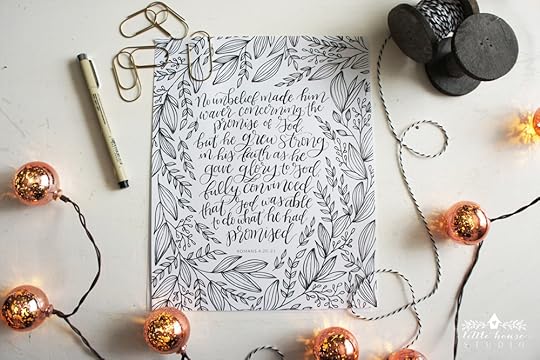 No unbelief made him
waver concerning the
promise of God
but he grew strong
in his faith as he
gave glory to God
fully convinced
that God was able
to do what he had
promised
ROMANS 4:20-21
little house
STUDIO